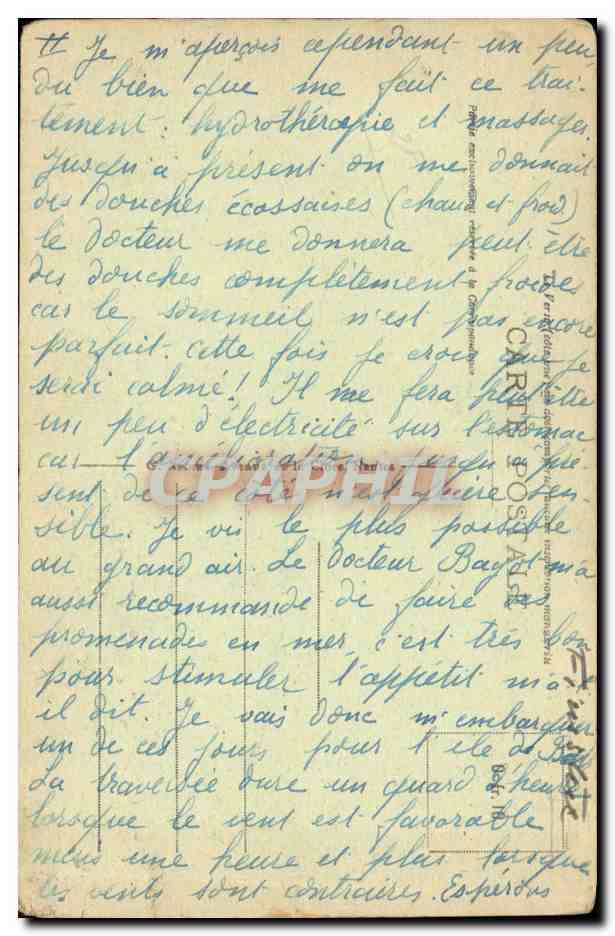 II Je m'aperçois cependant un peu
du bien que me fait ce trai-
tement : hydrothérapie et massages.
Jusqu'à présent on me donnait
des douches écossaises (chaud et froid)
le docteur me donnera peut être
des douches complètement froides
car le sommeil n'est pas encore
parfait. Cette fois je crois que je
serai calmé ! Il me fera peut être
un peu d'électricité sur l'estomac
car l'amélioration jusqu'à pré-
sent de ce côté n'est guère sen-
sible. Je vis le plus possible
au grand air. Le docteur Bagot m'a
aussi recommandé de faire des
promenades en mer, c'est très bon
pour stimuler l'appétit m'a t
il dit. Je vais donc m'embarquer
un de ces jours pour l'île de Batz
La traversée dure un quart d'heure
lorsque le vent est favorable
mais une heure et plus lorsque
les vents sont contraires. Espérons
CARTE POSTALE
Partie exclusivement réservée à la Correspondance
Nantes
CPAPHIL
Finistère